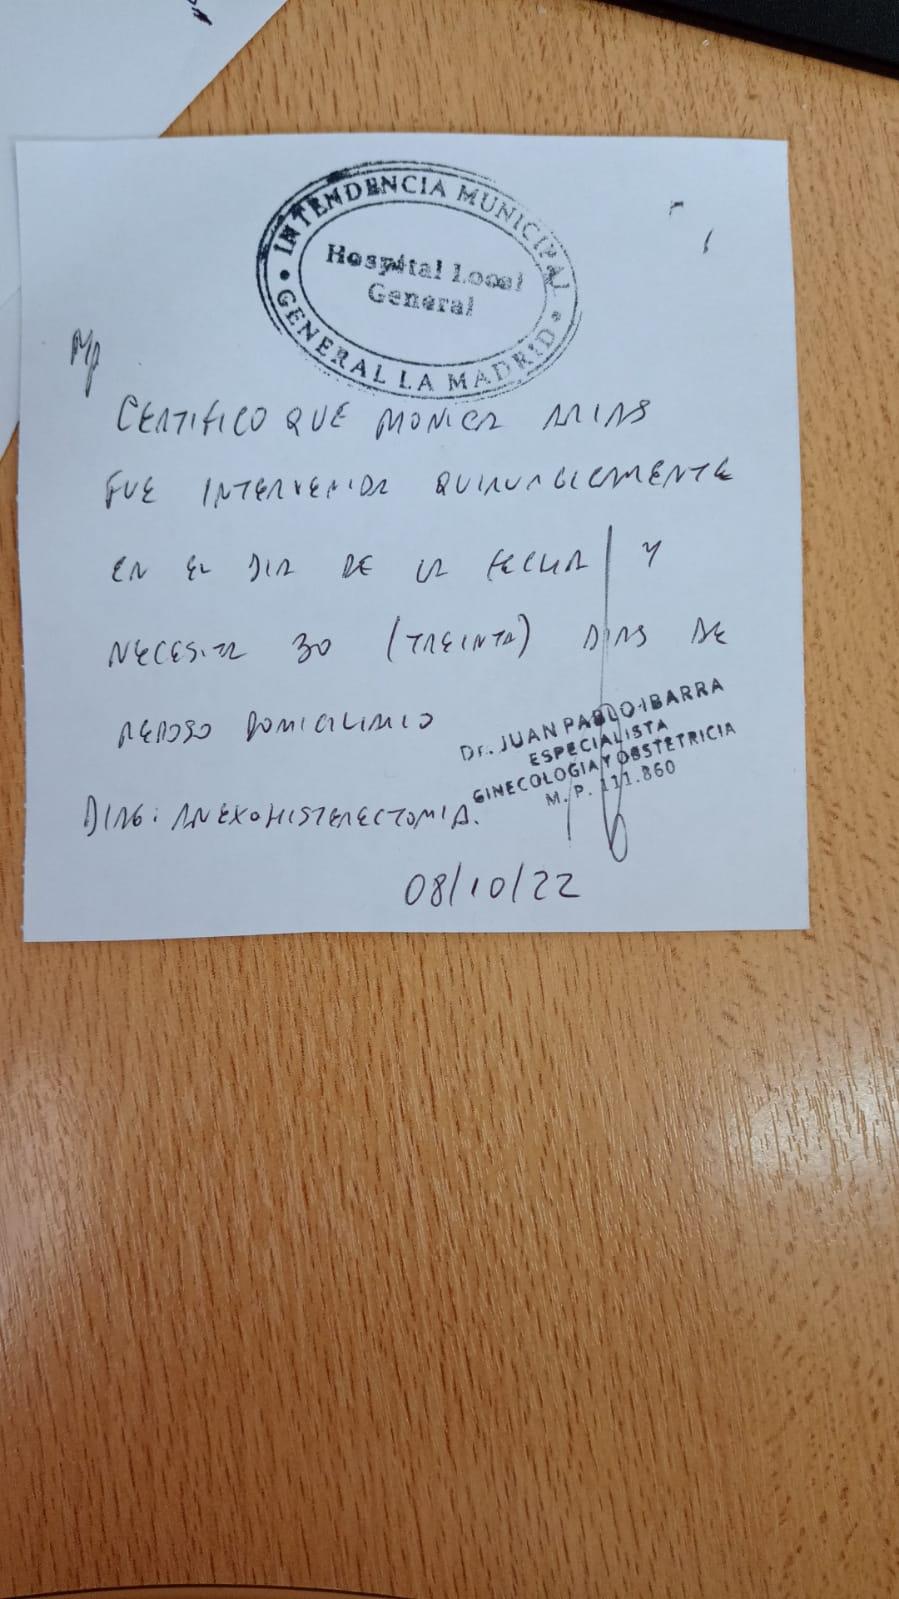 INTENDENCIA MUNICIPAL
Hospital Local
General
GENERAL LA MADRID
Rp
CERTIFICO QUE MONICA ARIAS
FUE INTERVENIDA QUIRURGICAMENTE
EN EL DIA DE LA FECHA Y
NECESITA 30 (TREINTA) DIAS DE
REPOSO DOMICILIARIO
Dr. JUAN PABLO IBARRA
ESPECIALISTA
GINECOLOGIA Y OBSTETRICIA
M. P. 111.860
DIAG: ANEXOHISTERECTOMIA.
08/10/22